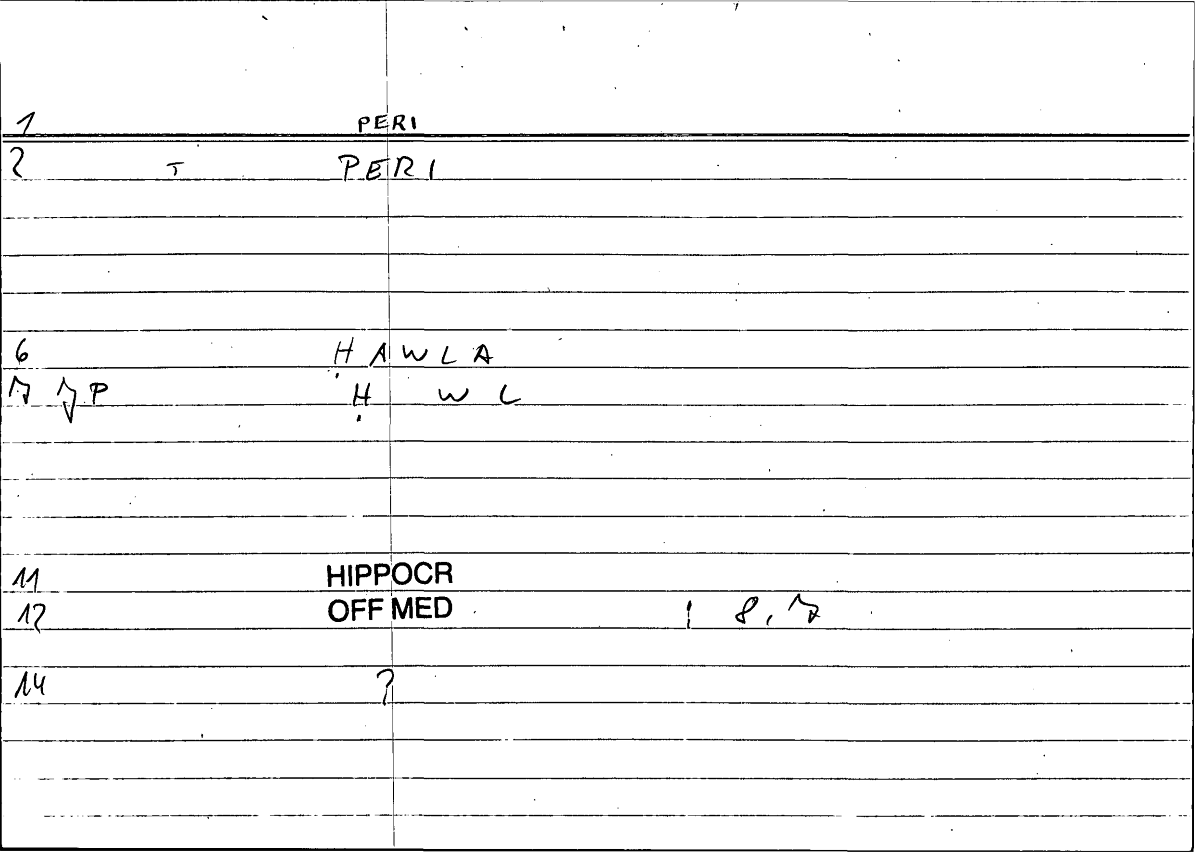 1 PERI
2 T PERI
6 ḤAWLA
7 7P Ḥ WL
11 HIPPOCR
12 OFF MED | 8, 7
14 ?